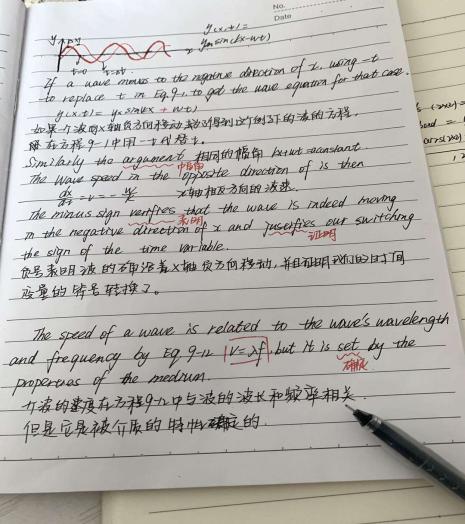 No.
Date
y(x,t)=
ym sin(kx-wt)
y
x
t=0
t=Δt
If a wave moves to the negative direction of x, using -t
to replace t in Eq.9-1, to get the wave equation for that case.
y(x,t)= ym sin(kx + wt)
如果一个波向x轴负方向移动,
在方程 9-1 中用 -t 代替 t.
Similarly the argument 相同的幅角 kx+wt = constant
幅角
The wave speed in the opposite direction of is then
dx/dt = v = - w/k x轴相反方向的波速.
The minus sign verifies that the wave is indeed moving
表明
in the negative direction of x and justifies our switching
证明
the sign of the time variable.
负号表明波的确沿着x轴负方向移动,并且证明我们的时间
变量的符号转换了.
The speed of a wave is related to the wave's wavelength
and frequency by Eq.9-12 v=λf, but it is set by the
确定
properties of the medium.
介波的速度在方程9-12中与波的波长和频率相关.
但是它是被介质的特性确定的.